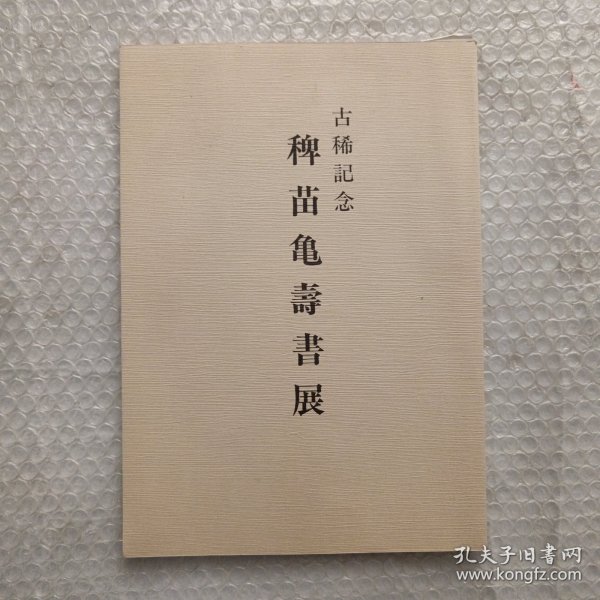 古稀記念
稗苗亀壽書展
孔夫子旧书网
www.kongfz.com